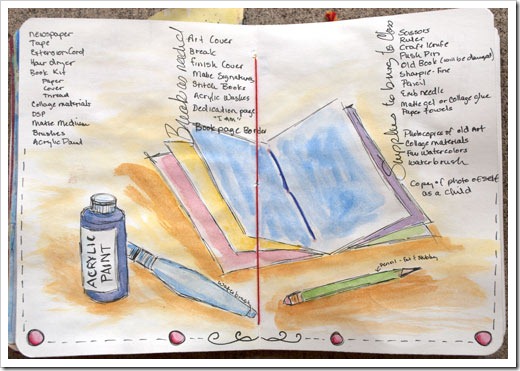 newspaper
Tape
Extension Cord
Hair dryer
Book Kit
Paper
cover
Thread
Collage materials
DSP
Matte Medium
Brushes
Acrylic Paint
Break as needed
Art Cover
Break
finish Cover
Make Signatures
Stitch Books
Acrylic Washes
Dedication page
"I am"
Book page Border
Supplies to bring to Class
Scissors
Ruler
Craft knife
Push Pin
Old Book (will be damaged)
Sharpie - Fine
Pencil
Emb needle
Matte gel or Collage glue
Paper towels
Photocopies of old Art
Collage materials
Fav Watercolors
Waterbrush
Copy of photo of self
as a child
ACRYLIC
PAINT
waterbrush
pencil - Fat & Stubby